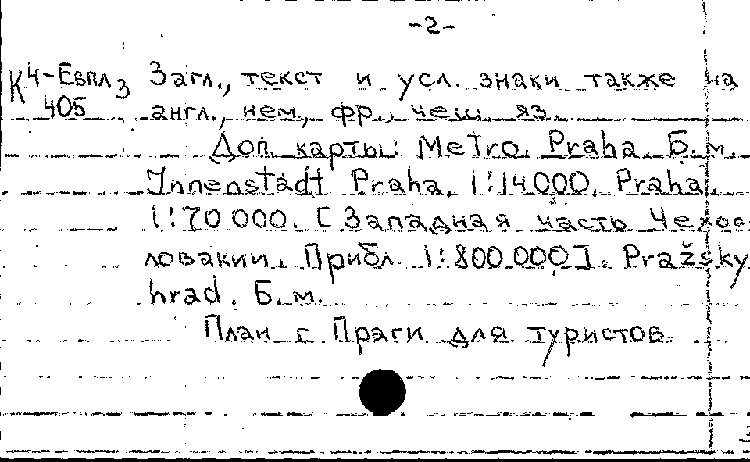 -2-
К4-Евпл3 Загл., текст и усл. знаки также на
405 англ., нем., фр., чеш. яз.
Доп. карты: Metro. Praha. Б.м.
Innenstadt Praha. 1:14000. Praha.
1:70 000. [Западная часть Чехос-
ловакии. Прибл. 1:800 000]. Pražsky
hrad. Б.м.
План г. Праги для туристов.